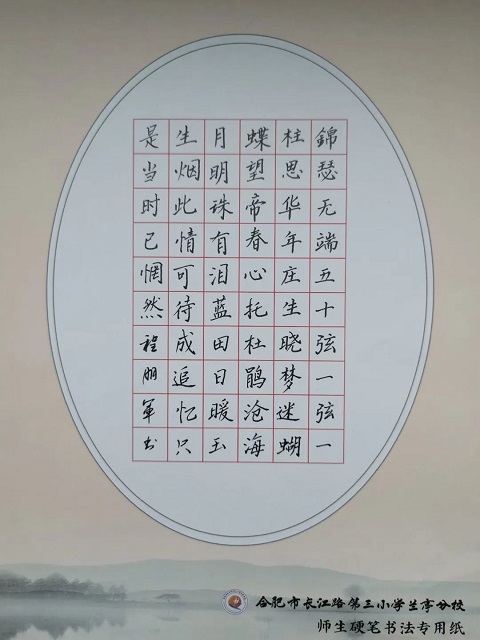 錦瑟无端五十弦一弦一
柱思华年庄生晓梦迷蝴
蝶望帝春心托杜鹃沧海
月明珠有泪蓝田日暖玉
生烟此情可待成追忆只
是当时已惘然程朋軍书
合肥市长江路第三小学兰亭分校
师生硬笔书法专用纸